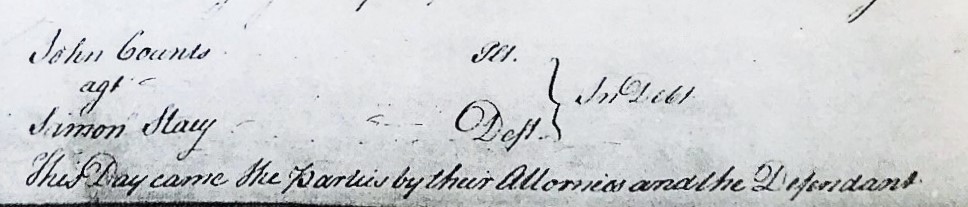 John Counts Plt.
agt
Simon Stacy Deft.
In Debt
This Day came the Parties by their Attornies and the Defendant